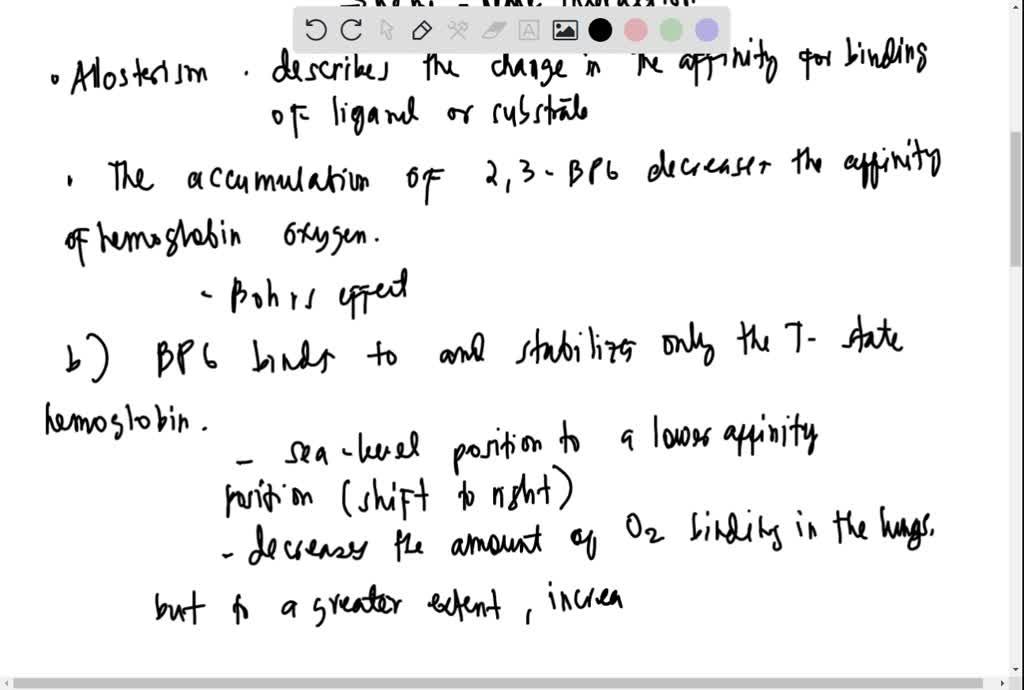 • Allosterism . describes the change in the affinity for binding
of ligand or substrate
• The accumulation of 2,3-BPG decreases the affinity
of hemoglobin oxygen.
- Bohrs effect
b) BPG binds to and stabilizes only the T- state
hemoglobin.
- sea-level position to a lower affinity
position (shift to right)
- decreases the amount of O2 binding in the lungs.
but to a greater extent, increa